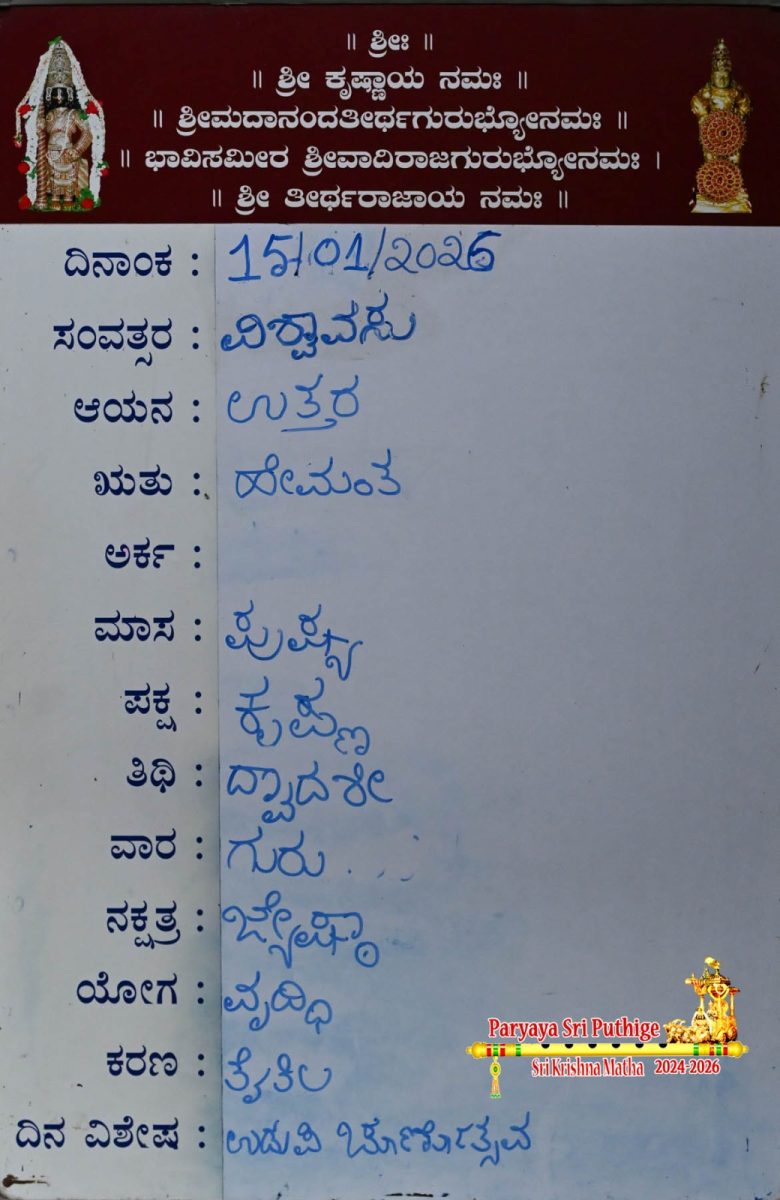 ॥ ಶ್ರೀಃ ॥
॥ ಶ್ರೀ ಕೃಷ್ಣಾಯ ನಮಃ ॥
॥ ಶ್ರೀಮದಾನಂದತೀರ್ಥಗುರುಭ್ಯೋನಮಃ ॥
॥ ಭಾವಿಸಮೀರ ಶ್ರೀವಾದಿರಾಜಗುರುಭ್ಯೋನಮಃ ।
॥ ಶ್ರೀ ತೀರ್ಥರಾಜಾಯ ನಮಃ ॥
ದಿನಾಂಕ : 15/01/2026
ಸಂವತ್ಸರ : ವಿಶ್ವಾವಸು
ಆಯನ : ಉತ್ತರ
ಋತು : ಹೇಮಂತ
ಅರ್ಕ :
ಮಾಸ : ಪುಷ್ಯ
ಪಕ್ಷ : ಕೃಷ್ಣ
ತಿಥಿ : ದ್ವಾದಶೀ
ವಾರ : ಗುರು
ನಕ್ಷತ್ರ : ಜ್ಯೇಷ್ಠಾ
ಯೋಗ : ವೃದ್ಧಿ
ಕರಣ : ತೈತಿಲ
ದಿನ ವಿಶೇಷ : ಉಡುಪಿ ಚೂರ್ಣೋತ್ಸವ
Paryaya Sri Puthige
Sri Krishna Matha 2024-2026